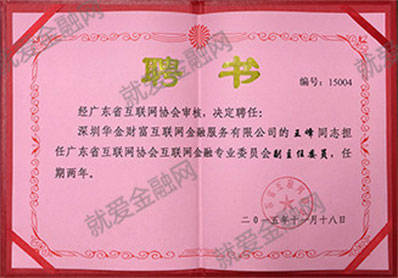 聘书
编号：15004
经广东省互联网协会审核，决定聘任：
深圳华金财富互联网金融服务有限公司的王峰同志担
任广东省互联网协会互联网金融专业委员会副主任委员，任
期两年。
二〇一五年十一月十八日
就爱金融网
就爱金融网
就爱金融网
就爱金融网